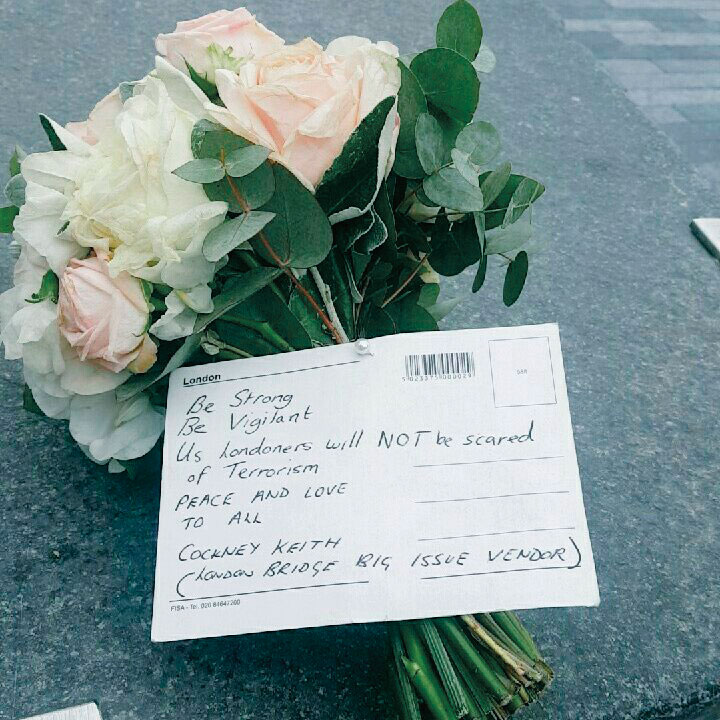 London
Be Strong
Be Vigilant
Us Londoners will NOT be scared
of Terrorism
PEACE AND LOVE
TO ALL
COCKNEY KEITH
(LONDON BRIDGE BIG ISSUE VENDOR)
FISA - Tel. 020 84647260